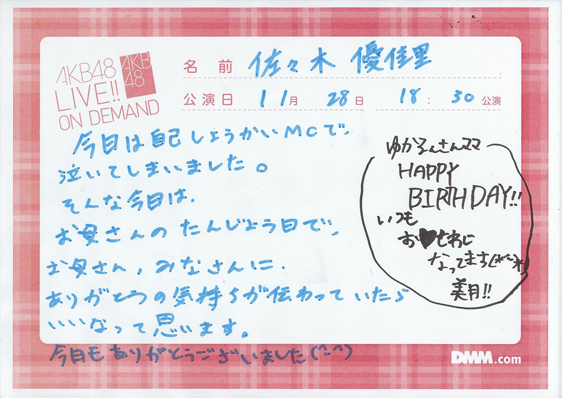 AKB48
LIVE!!
ON DEMAND
AKB
48
名前 佐々木 優佳里
公演日 11月 28日 18:30公演
今日は自己しょうかいMCで、
泣いてしまいました。
そんな今日は、
お母さんのたんじょう日で、
お母さん、みなさんに、
ありがとうの気持ちが伝わっていたら
いいなって思います。
今日もありがとうございました(^-^)
ゆかるんさんママ
HAPPY
BIRTHDAY!!
いつも
お♥せわに
なってます
美月!!
DMM.com